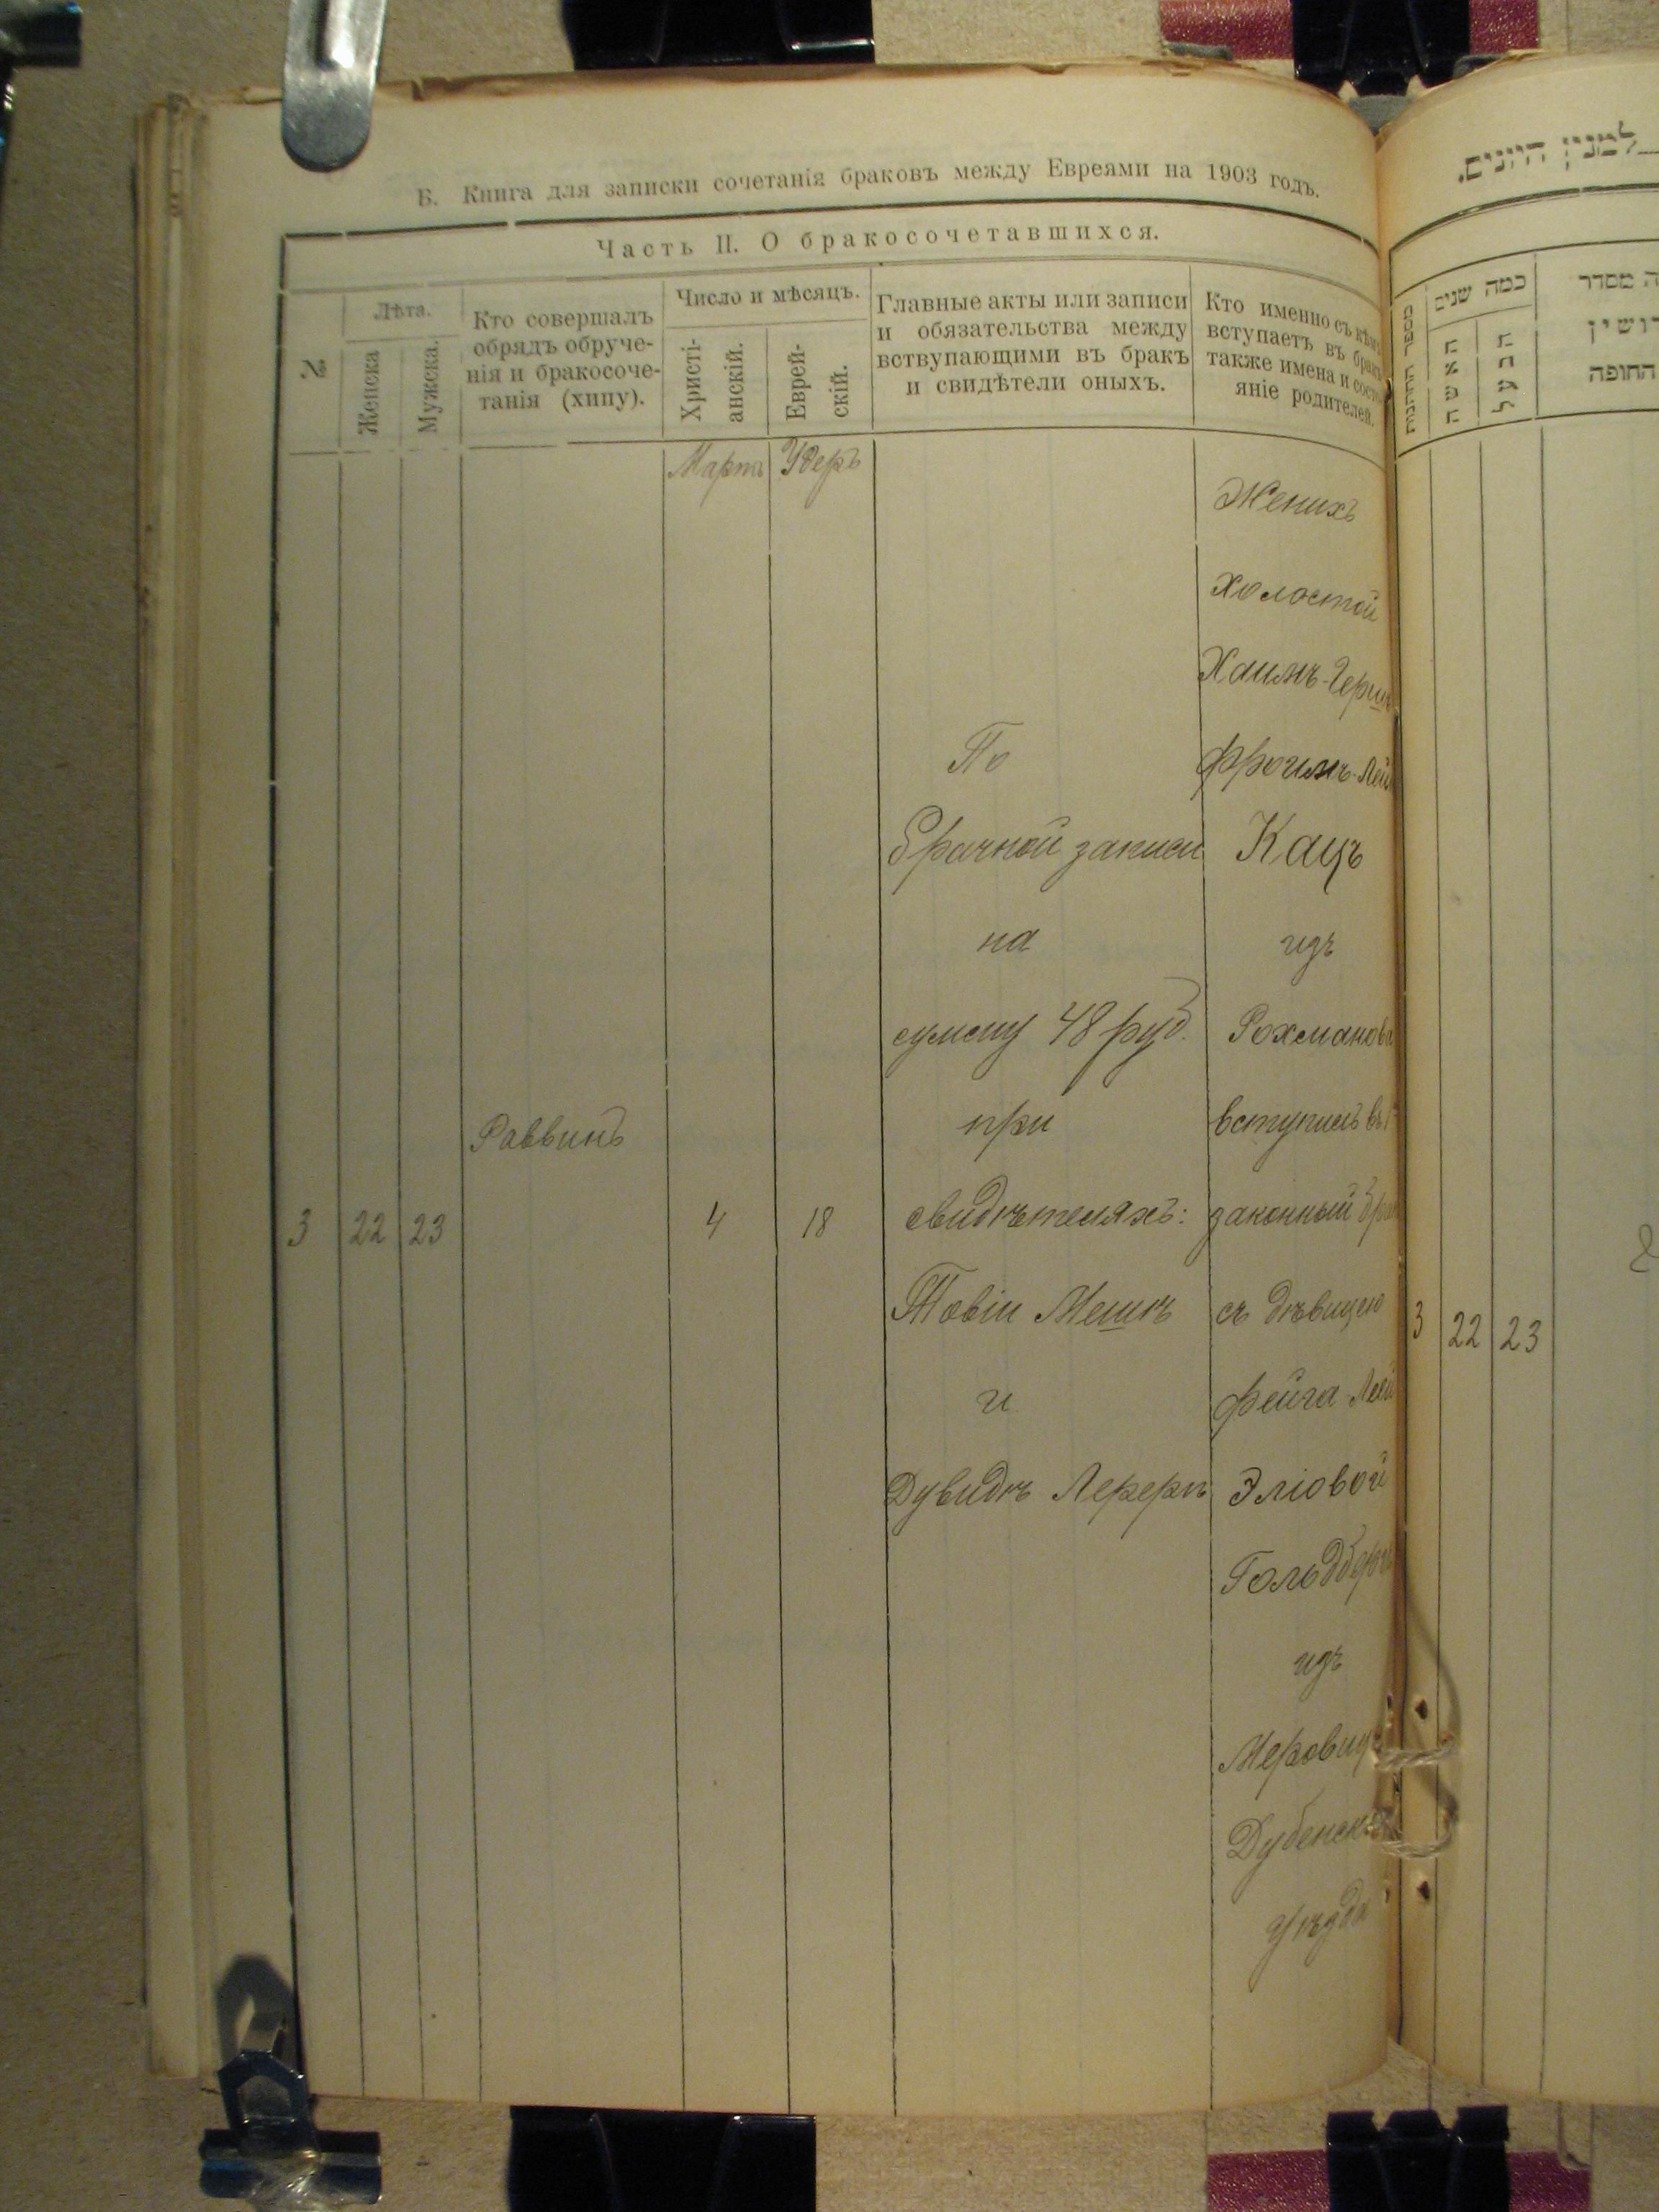 Б. Книга для записки сочетанія браковъ между Евреями на 1903 годъ.
Часть II. О бракосочетавшихся.
№
Лѣта.
Женска
Мужска.
Кто совершалъ
обрядъ обруче-
нія и бракосоче-
танія (хипу).
Число и мѣсяцъ.
Христі-
анскій.
Еврей-
скій.
Главные акты или записи
и обязательства между
вствупающими въ бракъ
и свидѣтели оныхъ.
Кто именно съ кѣмъ
вступаетъ въ бракъ
также имена и состо-
яніе родителей.
Мартъ
Удеръ
3
22
23
Раввинъ
4
18
По
брачной записи
на
сумму 48 руб.
при
свидѣтеляхъ:
Товіи Мешкъ
и
Дувидъ Лереръ
Женихъ
холостой
Хаимъ-Герш
Фроимъ-Лей
Кацъ
изъ
Рохманова
вступилъ въ
законный брак
съ дѣвицею
Фейга-Лея
Эліовой
Гольдберг
изъ
Меровиц
Дубенска
уѣзда
למנין היונים.
מספר החתונות
כמה שנים
האשה
הבעל
ה מסדר
החופה
3
22
23